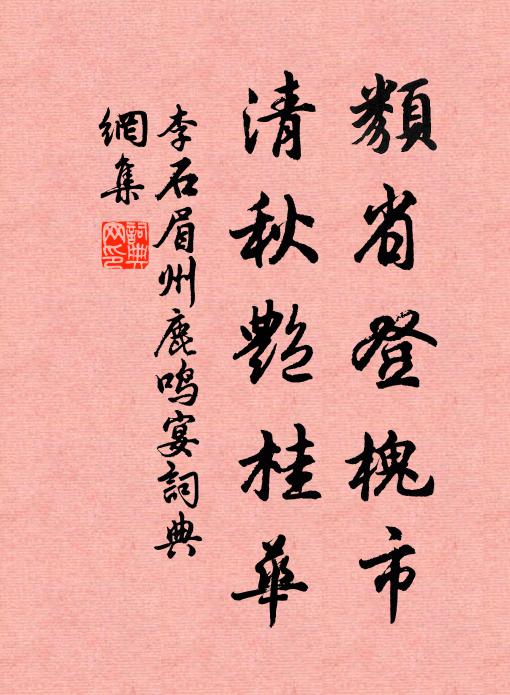 類省登槐市
清秋艷桂華
李石眉州鹿鳴宴詞典
網集
詞典網印